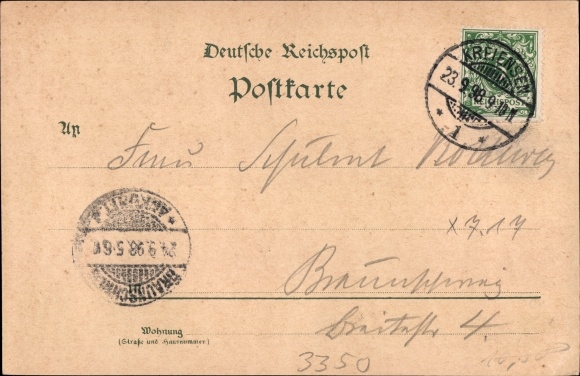 Deutsche Reichspost
Postkarte
KREIENSEN
23.9.98.9-10N
* 1 *
REICHSPOST
An
Frau
* ANKUNFT *
24.9.98.5-6V
BRAUNSCHWEIG
x 7.17
Braunschweig
Breitestr 4.
Wohnung
(Straße und Hausnummer)
3350